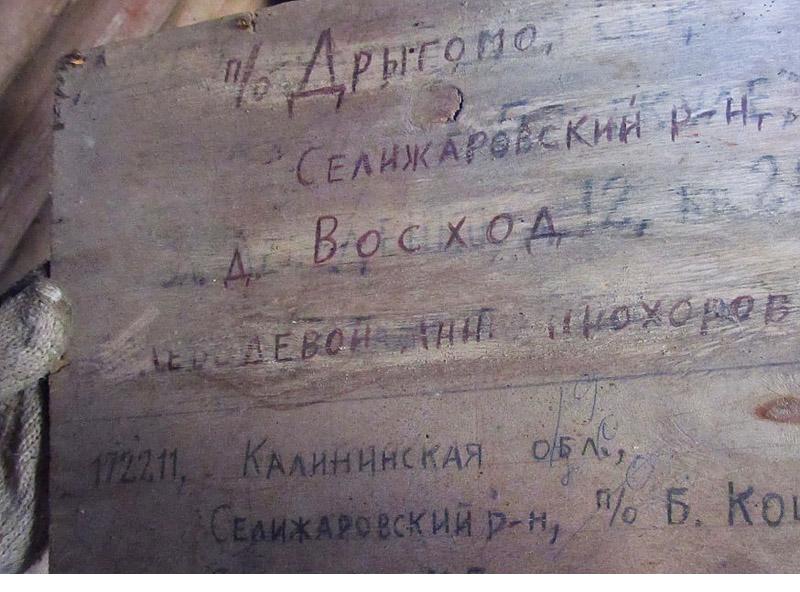 п/о Дрыгомо,
Селижаровский р-н,
д. Восход 12, кв.
Лебедевой Анне Прохоров
172211, Калининская обл.,
Селижаровский р-н, п/о Б. Кош